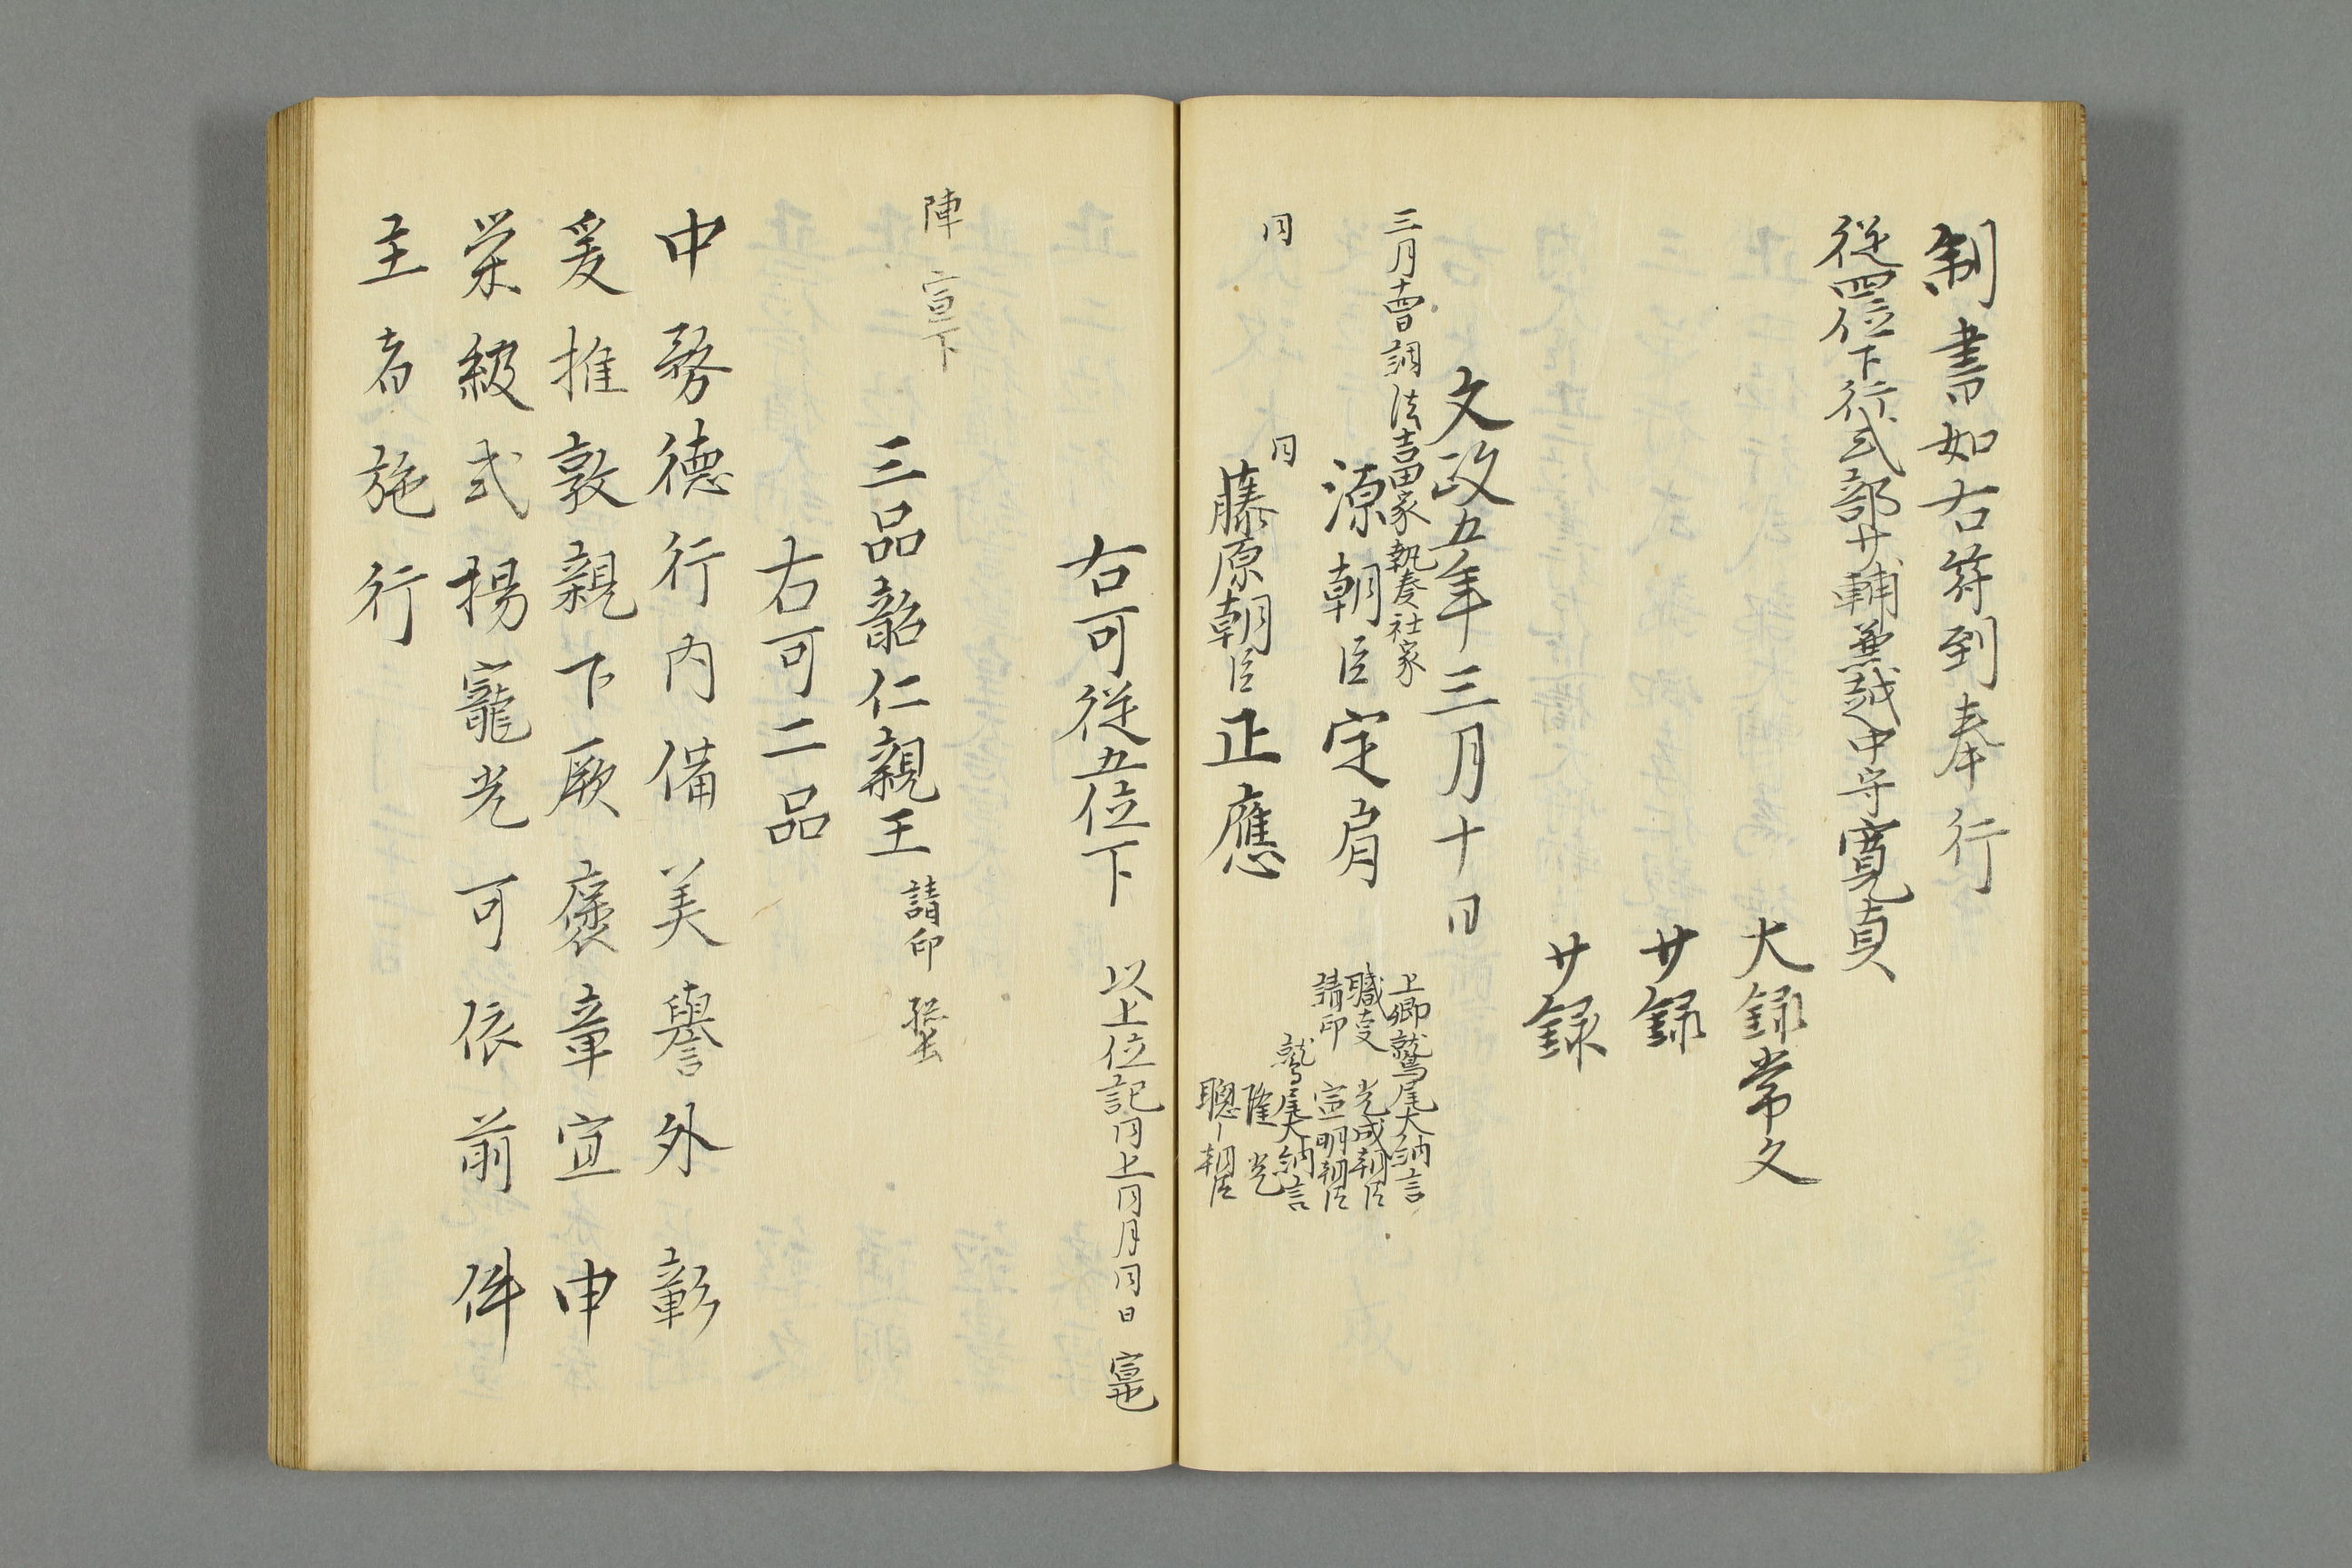 制書如右符到奉行
従四位下行式部少輔兼越中守寛貞
大録常文
少録
少録
文政五年三月十日
三月十四日 調 法吉田家執奏社家
源朝臣定肩
上卿鷲尾大納言
職事 光成朝臣
請印 宣明朝臣
同
同
藤原朝臣正應
鷲尾大納言
隆光
聰〻朝臣
右可従五位下
以上位記同上同月同日
陣 宣下
三品韶仁親王
請印
右可二品
中務徳行内備美譽外彰
爰推敦親下厥褒章宜申
榮級式揚寵光可依前件
主者施行